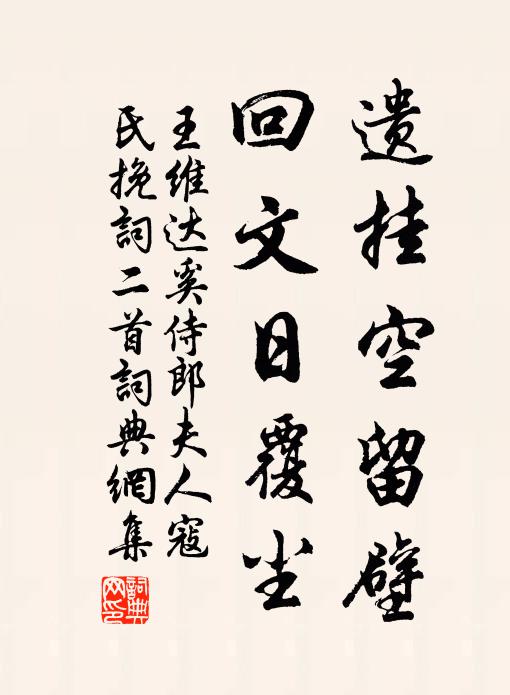 遺挂空留壁
回文日覆尘
王维达奚侍郎夫人寇
氏挽詞二首詞典網集
詞典
网印